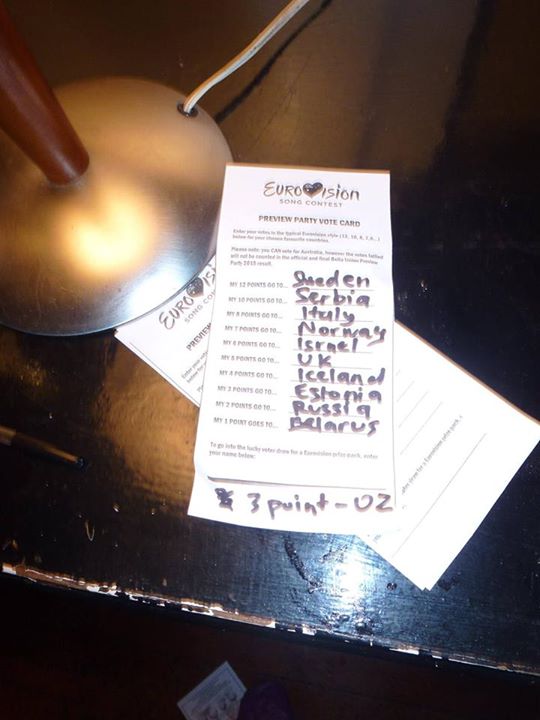 EUROVISION
SONG CONTEST
PREVIEW PARTY VOTE CARD
Enter your votes in the typical Eurovision style (12, 10, 8, 7, 6...)
below for your chosen favourite countries.
Please note: you CAN vote for Australia, however the votes tallied
will not be counted in the official and final Bella Union Preview
Party 2015 result.
MY 12 POINTS GO TO... Sweden
MY 10 POINTS GO TO... Serbia
MY 8 POINTS GO TO... Ituly
MY 7 POINTS GO TO... Norway
MY 6 POINTS GO TO... Israel
MY 5 POINTS GO TO... UK
MY 4 POINTS GO TO... Iceland
MY 3 POINTS GO TO... Estonia
MY 2 POINTS GO TO... Russia
MY 1 POINT GOES TO... Belarus
To go into the lucky voter draw for a Eurovision prize pack, enter
your name below:
3 point - OZ
EUROVISION
SONG CON
PREVIEW
Enter your votes
below for
draw for a Eurovision prize pack,